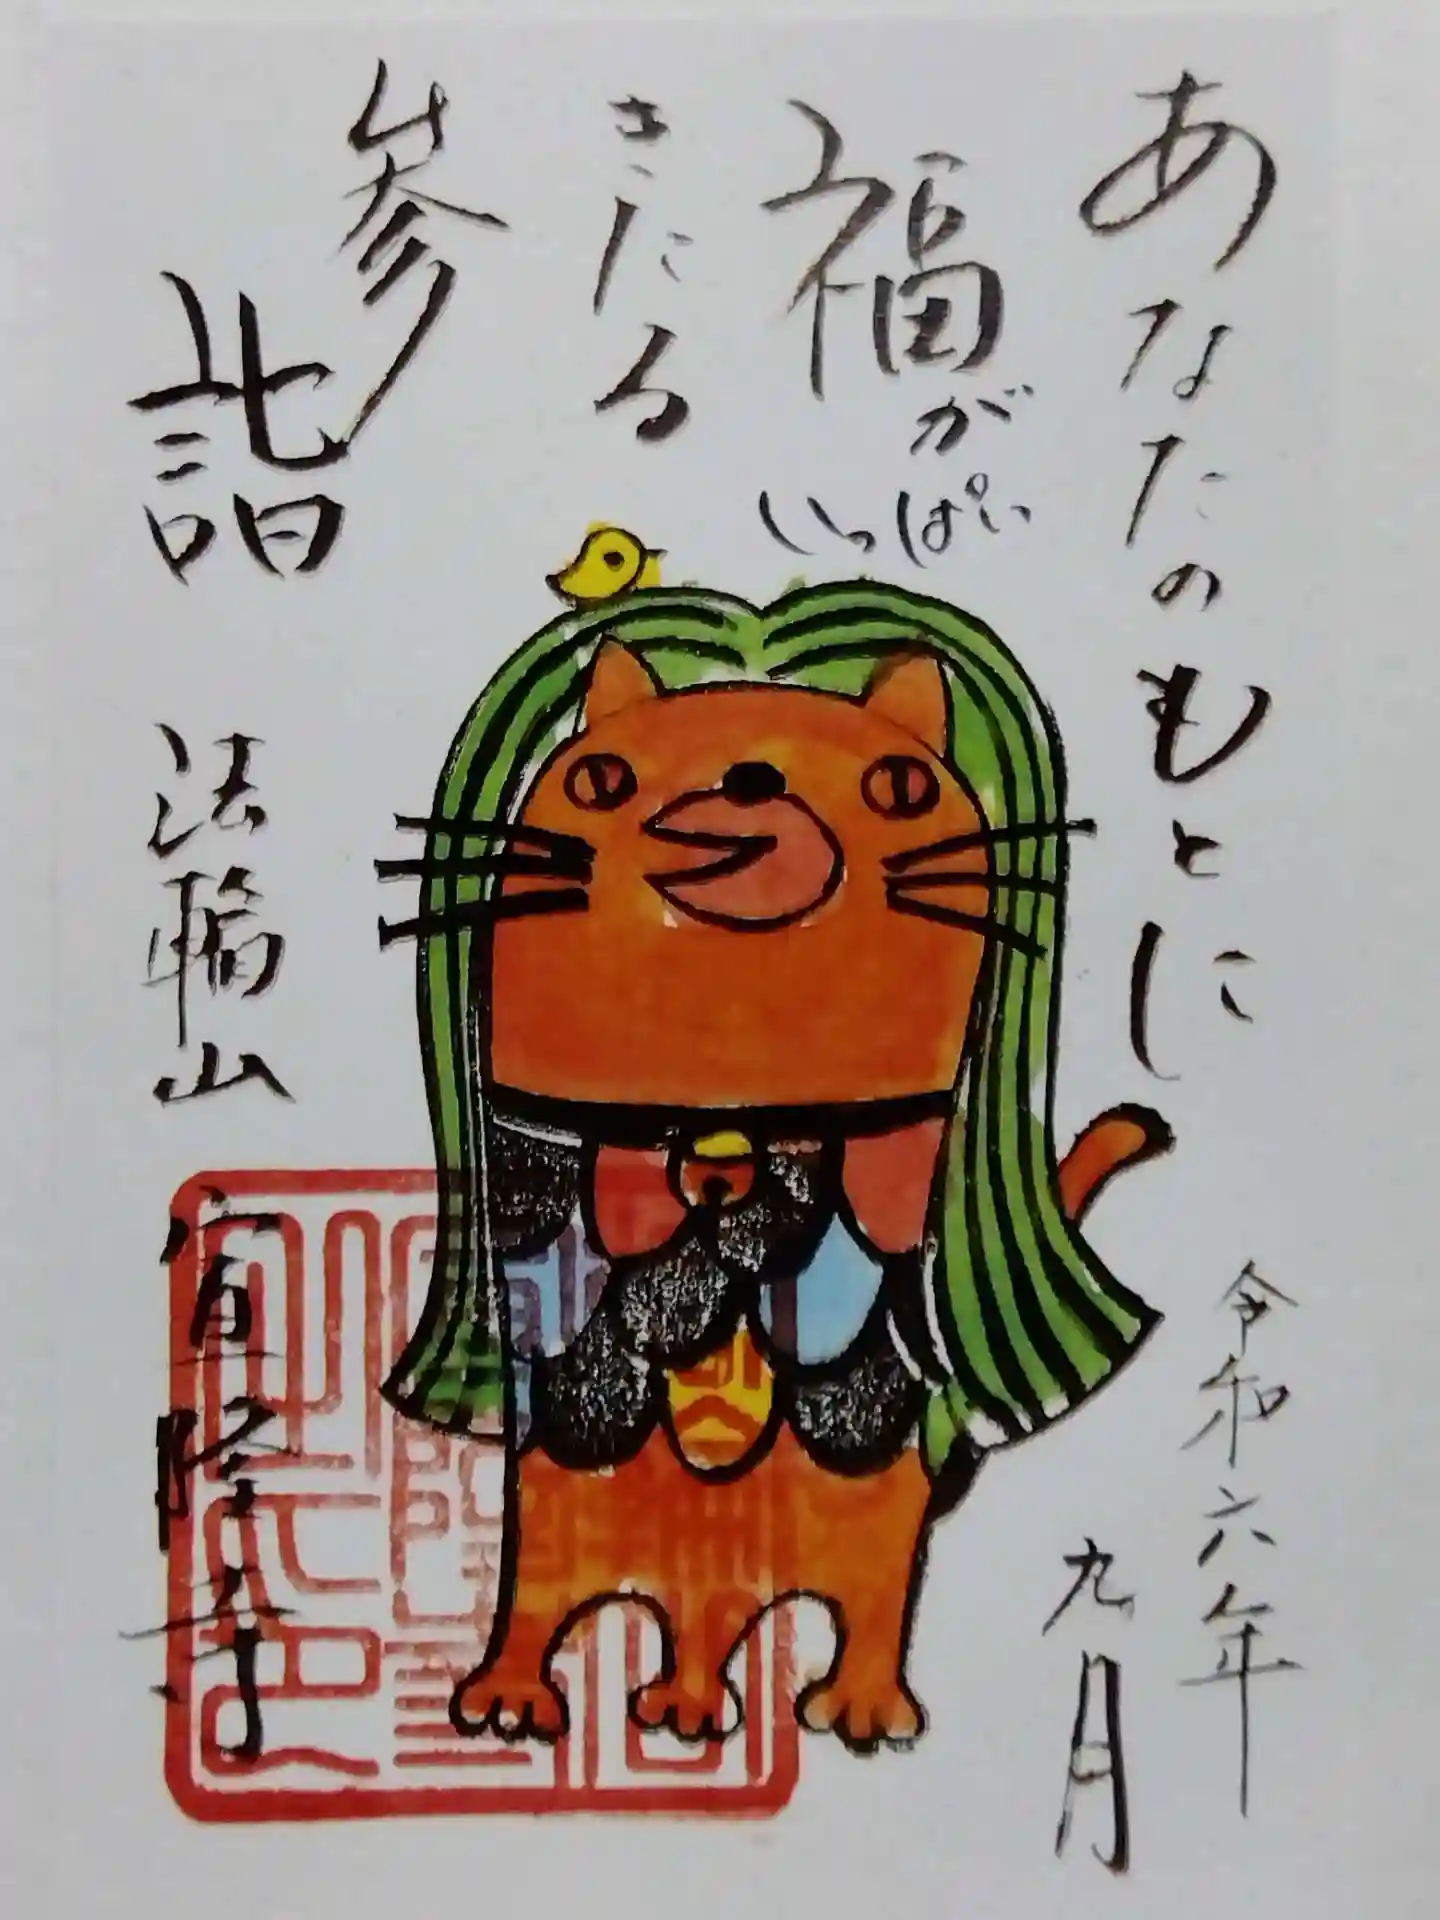 あなたのもとに
福が
いっぱい
きたる
参
詣
法輪山
宜隆寺
令和六年
九月